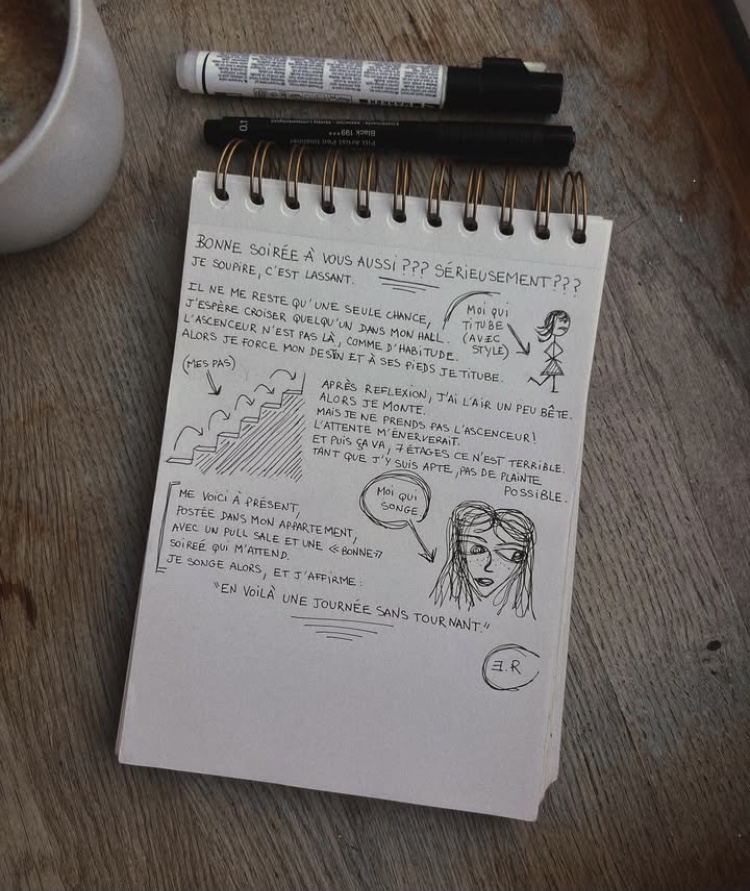 0.1
Black 199***
Pitt Artist Pen fineliner
BONNE SOIRÉE À VOUS AUSSI ??? SÉRIEUSEMENT???
JE SOUPIRE, C'EST LASSANT.
IL NE ME RESTE QU'UNE SEULE CHANCE,
J'ESPÈRE CROISER QUELQU'UN DANS MON HALL.
L'ASCENCEUR N'EST PAS LÀ, COMME D'HABITUDE.
ALORS JE FORCE MON DESTIN ET À SES PIEDS JE TITUBE.
MOI QUI
TITUBE
(AVEC
STYLE)
(MES PAS)
APRÈS REFLEXION, J'AI L'AIR UN PEU BÊTE.
ALORS JE MONTE.
MAIS JE NE PRENDS PAS L'ASCENCEUR!
L'ATTENTE M'ÉNERVERAIT.
ET PUIS ÇA VA, 7 ÉTAGES CE N'EST TERRIBLE.
TANT QUE J'Y SUIS APTE, PAS DE PLAINTE
POSSIBLE.
MOI QUI
SONGE
ME VOICI À PRÉSENT,
POSTÉE DANS MON APPARTEMENT,
AVEC UN PULL SALE ET UNE «BONNE»
SOIREÉ QUI M'ATTEND.
JE SONGE ALORS, ET J'AFFIRME:
"EN VOILÀ UNE JOURNÉE SANS TOURNANT."
E.R